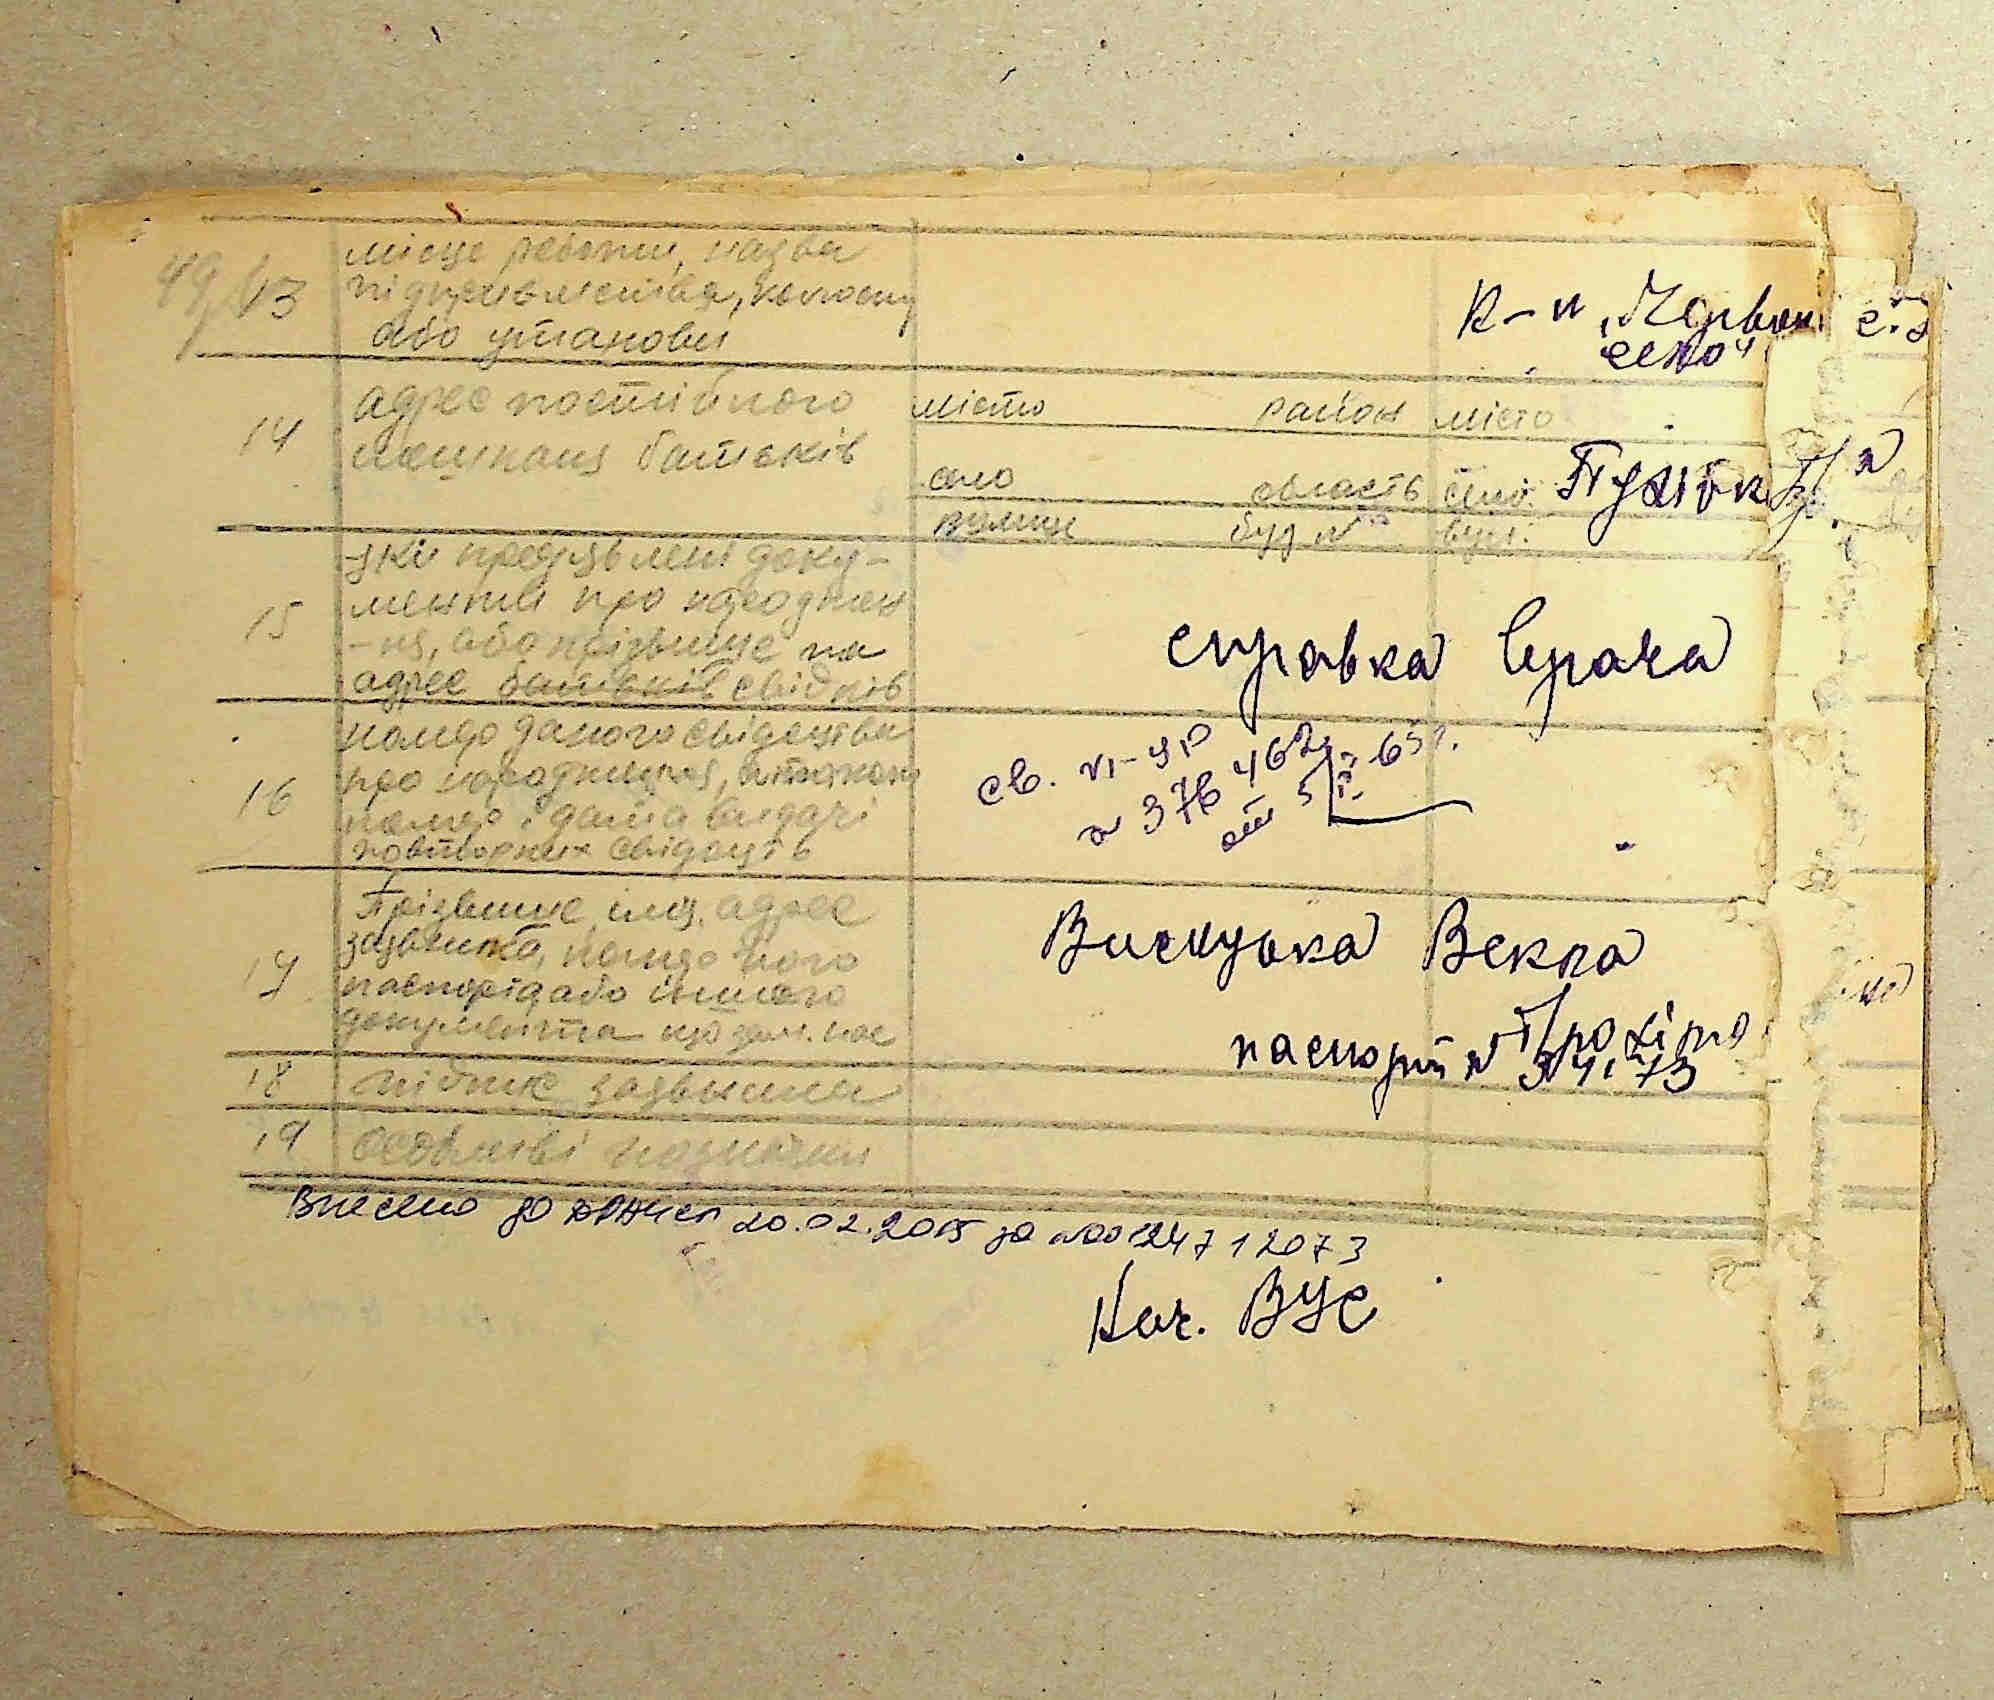 49/13 місце роботи, назва
підприємства, колгоспу
або установи
К-п "Червоне
село"
14 адрес постійного
мешканця батьків
місто район місто
село область село. Пухівка
вулиця буд № вул.
15 які предявлені доку-
менти про народжен
-ня, або прізвище та
адрес батьків свідків
справка врача
16 номер даного свідецтва
про народження, а також
номер і дата видачі
повторних свідоцтв
св. VI-УР
№ 376462
от 5/II-65г.
17 Прізвище, імя, адрес
заявника, номер його
паспорта або іншого
документа що зам. пас
Вискузка Векла
Трохімо
паспорт №
18 підпис заявника
19 особливі позначки
Внесено до ДРАЦСГ 20.02.2015 за №0012471 2073
Нач. ВУС